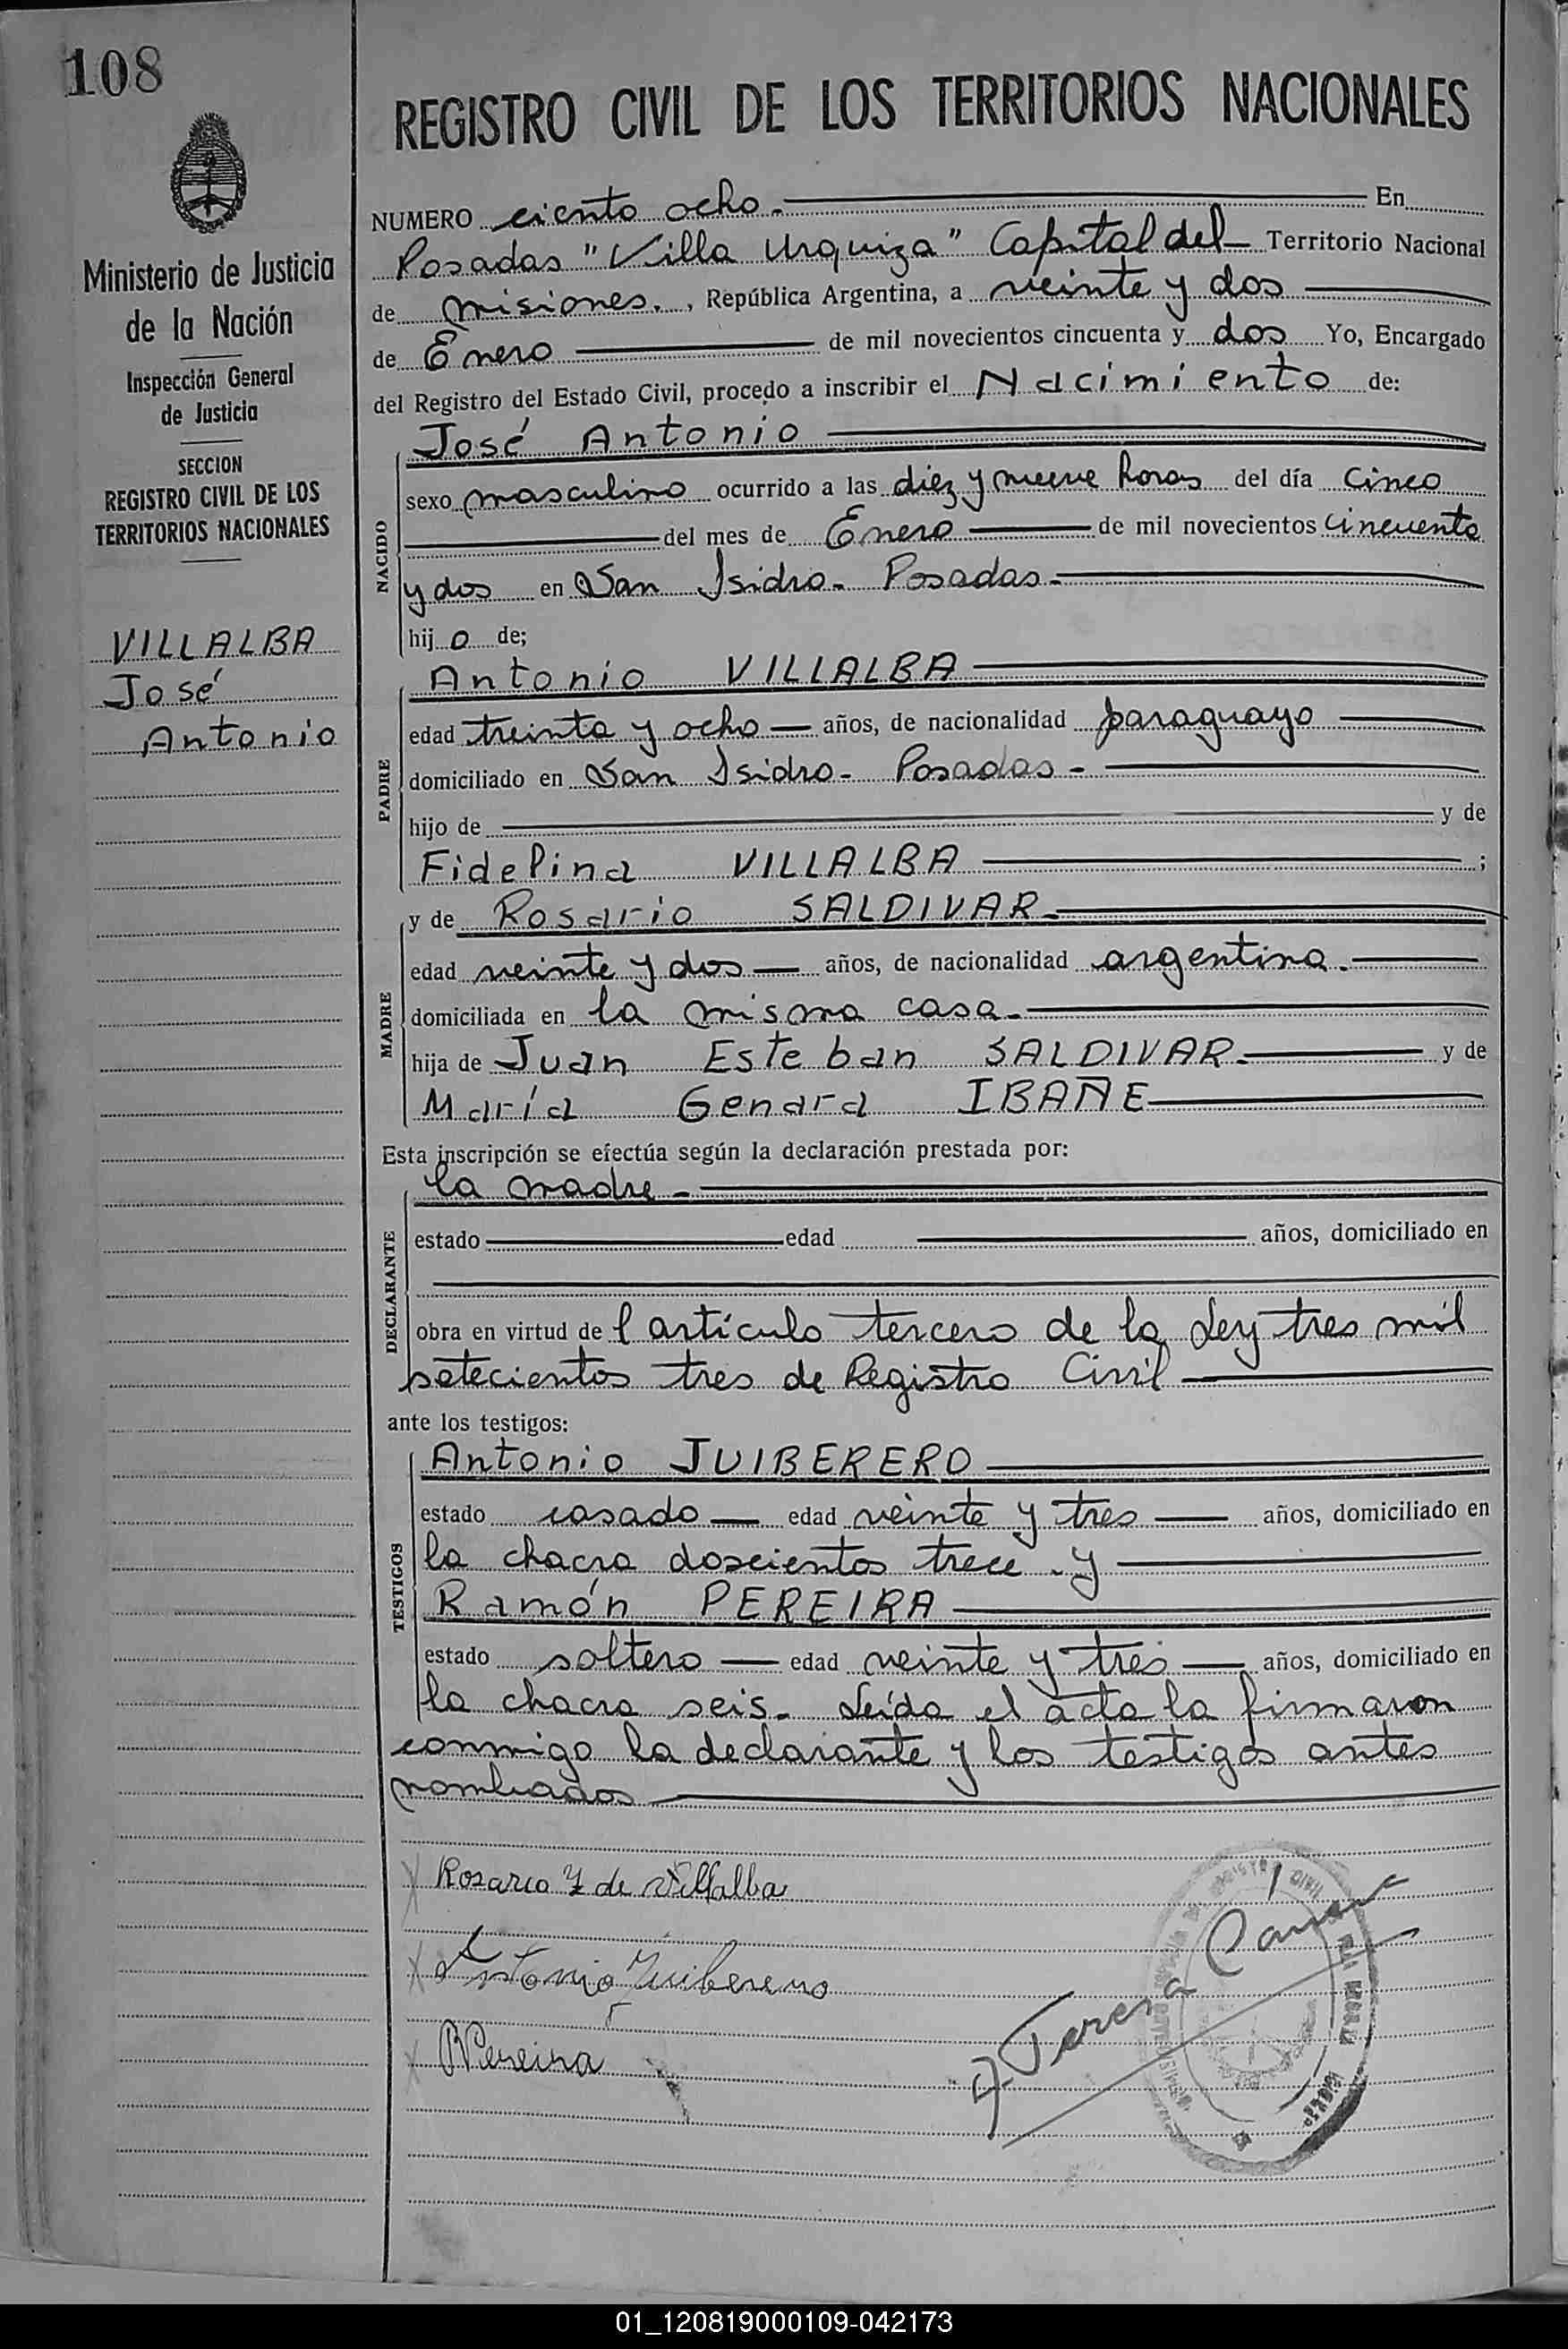 108
REGISTRO CIVIL DE LOS TERRITORIOS NACIONALES
Ministerio de Justicia
de la Nación
Inspección General
de Justicia
SECCION
REGISTRO CIVIL DE LOS
TERRITORIOS NACIONALES
VILLALBA
José
Antonio
NUMERO ciento ocho.- En
Posadas "Villa Urquiza" Capital del Territorio Nacional
de misiones., República Argentina, a veinte y dos
de Enero de mil novecientos cincuenta y dos Yo, Encargado
del Registro del Estado Civil, procedo a inscribir el Nacimiento de:
NACIDO
José Antonio
sexo masculino ocurrido a las diez y nueve horas del día cinco
del mes de Enero de mil novecientos cincuenta
y dos en San Isidro- Posadas.-
hij o de;
PADRE
Antonio VILLALBA
edad treinta y ocho años, de nacionalidad paraguayo
domiciliado en San Isidro- Posadas-
hijo de y de
Fidelina VILLALBA ;
MADRE
y de Rosario SALDIVAR-
edad veinte y dos años, de nacionalidad argentina.-
domiciliada en la misma casa.-
hija de Juan Esteban SALDIVAR- y de
María Genara IBAÑE
Esta inscripción se efectúa según la declaración prestada por:
DECLARANTE
la madre-
estado edad años, domiciliado en
obra en virtud de l artículo tercero de la Ley tres mil
setecientos tres de Registro Civil
ante los testigos:
TESTIGOS
Antonio JUIBERERO
estado casado edad veinte y tres años, domiciliado en
la chacra doscientos trece.y
Ramón PEREIRA
estado soltero edad veinte y tres años, domiciliado en
la chacra seis.- Leída el acta la firmaron
conmigo la declarante y los testigos antes
nombrados
Rosario de Villalba
Antonio Juiberero
RPereira
Teresa
01_120819000109-042173